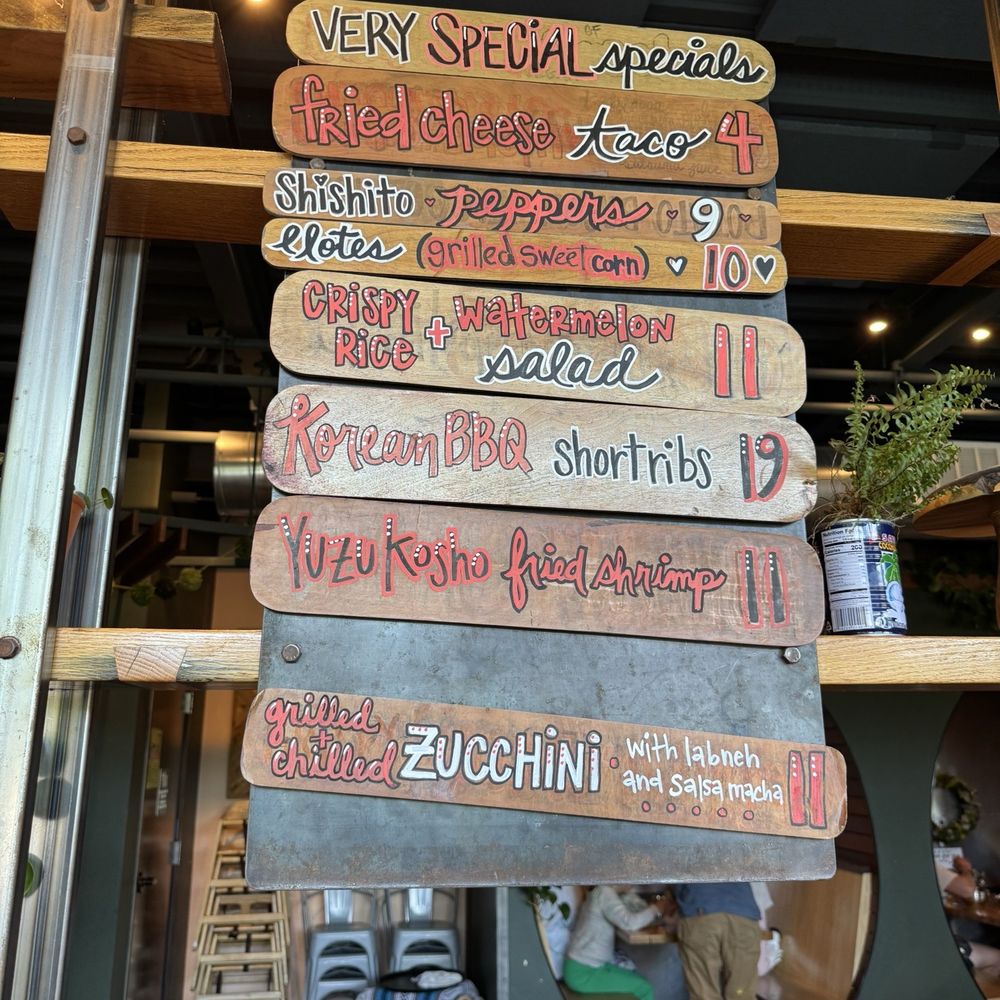 VERY SPECIAL specials
fried cheese taco 4
Shishito peppers 9
elotes (grilled sweet corn) 10
CRISPY RICE + watermelon salad 11
Korean BBQ short ribs 19
Yuzu Kosho fried shrimp 11
grilled + chilled ZUCCHiNi • with labneh and salsa macha 11
Nutrition Fa
200